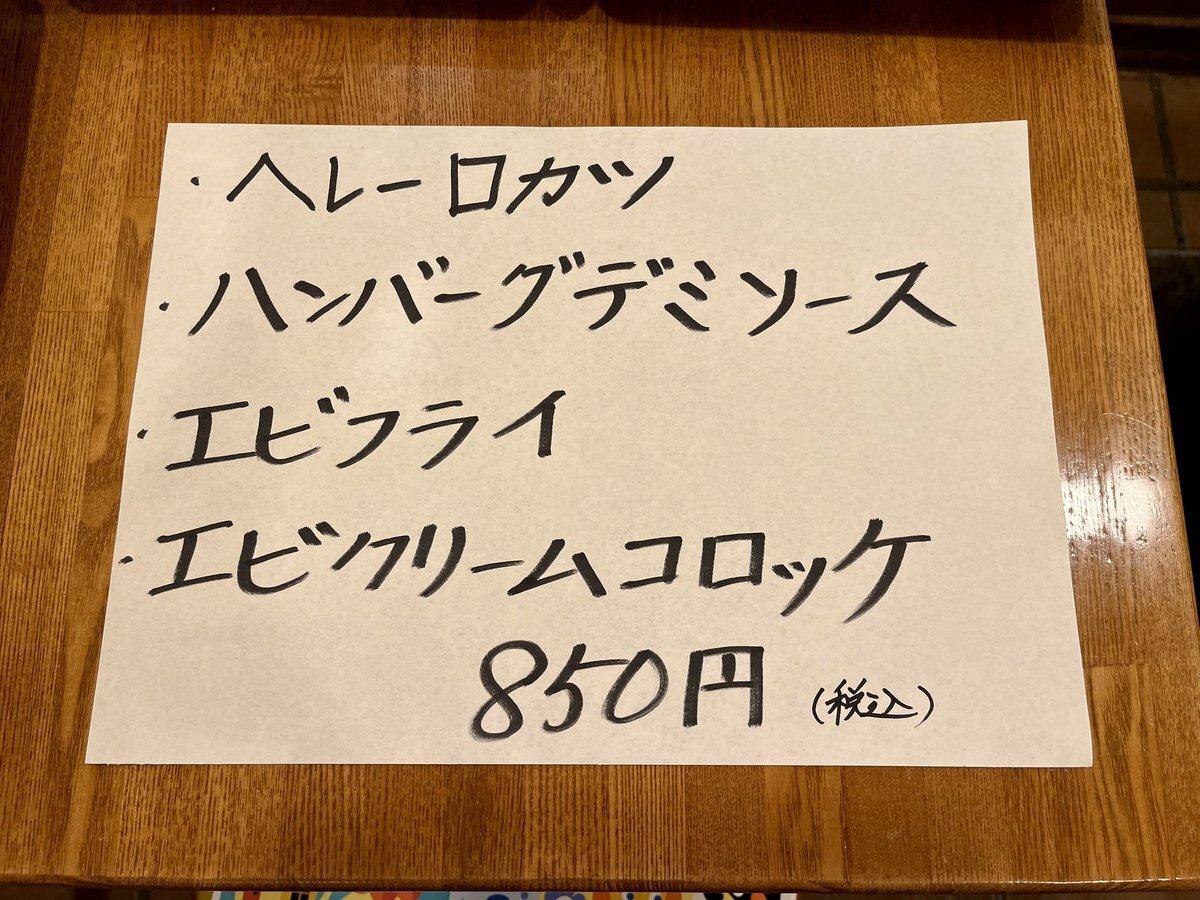 ・ヘレ一口カツ
・ハンバーグデミソース
・エビフライ
・エビクリームコロッケ
850円 (税込)